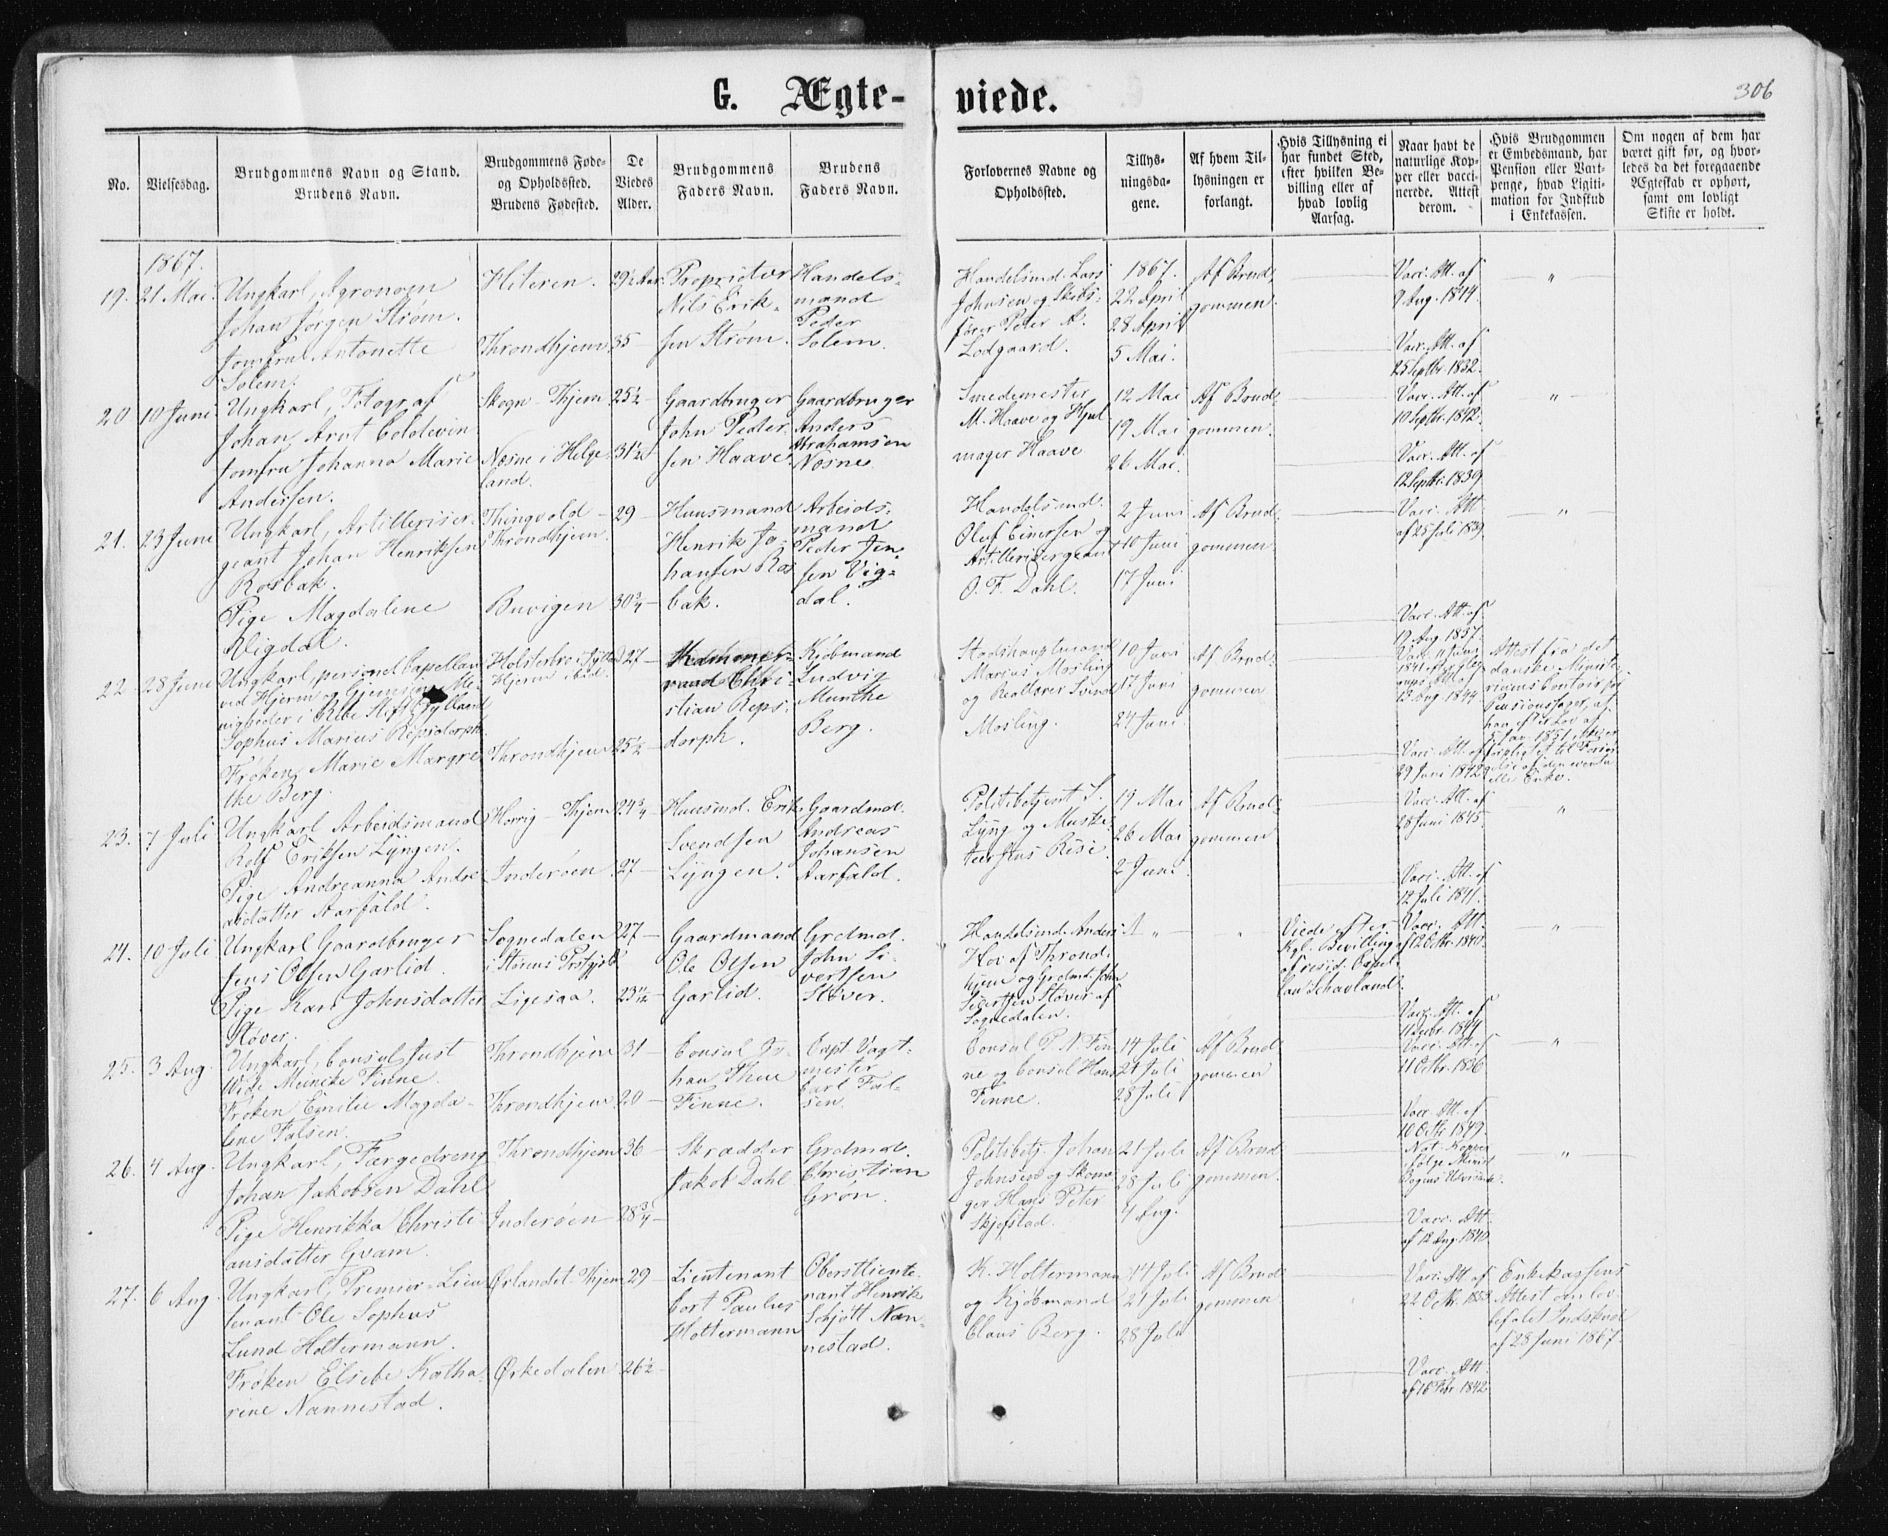 G. Ægte-
viede.
306
No.
Vielsesdag.
Brudgommens Navn og Stand.
Brudens Navn.
Brudgommens Føde-
og Opholdssted.
Brudens Fødested.
De
Viedes
Alder.
Brudgommens
Faders Navn.
Brudens
Faders Navn.
Forlovernes Navne og
Opholdssted.
Tillys-
ningsda-
gene.
Af hvem Til-
lysningen er
forlangt.
Hvis Tillysning ei
har fundet Sted,
efter hvilken Be-
villing eller af
hvad lovlig
Aarsag.
Naar havt de
naturlige Kop-
per eller vacci-
nerede. Attest
derom.
Hvis Brudgommen
er Embedsmand, har
Pension eller Vart-
penge, hvad Ligiti-
mation for Indskud
i Enkekassen.
Om nogen af dem har
været gift før, og hvor-
ledes da det foregaaende
Ægteskab er ophørt,
samt om lovligt
Skifte er holdt.
1867.
19. 21 Mai.
Ungkarl, Agronom
Johan Jørgen Strøm.
Jomfru Antonette
Solem.
Hiteren.
Throndhjem
29½ Aar
35
Proprietær
Nils Erik-
sen Strøm.
Handels-
mand
Peder
Solem.
Handelsmd. Lars
Johnsen og Skibs-
fører Peter A.
Lodgaard.
1867.
22 April
28 April
5 Mai.
Af Brud-
gommen
Vacc. Att. af
9 Aug. 1844
Vacc. Att. af
25 Septbr. 1832.
"
20 10 Juni
Ungkarl, Fotograf
Johan Arnt Coldevin
Jomfru Johanna Marie
Andersen.
Skogn - Thjem
Næsne i Helge-
land.
25½
31½
Gaardbruger
John Peder-
sen Haave.
Gaardbruger
Anders
Abrahamsen
Nosne.
Smedemester
M. Haave og Hjul-
mager Haave
12 Mai
19 Mai
26 Mai.
Af Brud-
gommen.
Vacc. Att. af
10 Septbr. 1842.
Vacc. Att. af
12 Septbr. 1839.
"
21. 23 Juni
Ungkarl, Artilleriser-
geant Johan Henriksen
Rosbak.
Pige Magdalene
Vigdal.
Thingvold -
Throndhjem.
Buvigen
29
30¾
Huusmand
Henrik Jo-
hansen Ros-
bak.
Arbeids-
mand
Peder Jen-
sen Vig-
dal.
Handelsmd.
Oluf Einersen og
Artillerisergeant
O. F. Dahl.
2 Juni
10 Juni
17 Juni
Af Brud-
gommen
Vacc. Att
af 25 Juli 1839.
Vacc. Att. af
19 Aug. 1837.
"
22 28 Juni
Ungkarl, personel Capellan
ved Hjerm og Gjemsing Me-
nigheder i Ribe Stift Jylland
Sophus Marius Repsdorph
Frøken Marie Margre-
the Berg.
Holsterbro i Jylland
Hjerm ibid.
Throndhjem
27
25½
Kammer-
raad Chri-
stian Reps-
dorph.
Kjøbmand
Ludvig
Munthe
Berg.
Stadshauptmand
Marius Mosling
og Realærer Svend
Mosling.
10 Juni
17 Juni
24 Juni
Af Brud-
gommen
13 Aug 1844
Vacc. Att. af
29 Juni 1842
Attest fra det
danske Ministe-
riums Contoir for
Pensionssager, at
han efter Lov af
5 Jan. 1851
elle Enke.
23. 7 Juli
Ungkarl Arbeidsmand
Rolf Eriksen Lyngen.
Pige Andreanna Andre-
asdatter Aarfald.
Horrig - Thjem
Inderøen
24¾
27
Huusmd. Erik
Svendsen
Lyngen.
Gaardmd.
Andreas
Johansen
Aarfald.
Politibetjent S.
Lyng og Muske-
teer Risi.
19 Mai
26 Mai
2 Juni
Af Brud-
gommen
Vacc. Att. af
28 Juni 1845.
Vacc. Att. af
12 Juli 1841.
"
24. 10 Juli
Ungkarl Gaardbruger
Jens Olsen Garlid.
Pige Kari Johnsdatter
Støver.
Sognedalen
i Størens Prstgjeld
Ligesaa.
27
23 11/12
Gaardmand
Ole Olsen
Garlid.
Grdmd.
John Si-
vertsen
Støver.
Handelsmd. Anders
Hov af Thrond-
hjem og Grdmd. John
Sivertsen Støver af
Sognedalen.
"
"
Viede efter
Kgl. Bevilling
af resid. Capel-
lan Schavland.
Vacc. Att.
af 12 Octbr. 1840.
Vacc. Att. af
1844
"
25. 3 Aug.
Ungkarl, Consul Just
Wide Meincke Finne.
Frøken Emilie Magda-
lene Falsen.
Throndhjem
Throndhjem
31
20
Consul Jo-
han Thue
Finne.
Capt. Vagt-
mester
Carl Fal-
sen.
Consul P. N. Fin-
ne og Consul Hans
Finne.
14 Juli
21 Juli
28 Juli
Af Brud-
gommen
Vacc. Att. af
11 Octbr. 1836
Vacc. Att. af
10 Octbr 1849.
"
26. 4 Aug.
Ungkarl, Færgedreng
Johan Jakobsen Dahl
Pige Henrikka Christi-
ansdatter Gvam.
Throndhjem
Inderøen
36
28¾
Skrædder
Jakob Dahl
Grdmd.
Christian
Grøn.
Politibetj. Johan
Johnsen og Skoma-
ger Hans Peter
Skjefstad.
21 Juli
28 Juli
4 Aug.
Af Brud-
gommen.
Nat. Kopper
ifølge Minist.
Bogens Udvisende.
Vacc. Att.
af 12 Aug. 1840
"
27. 6 Aug.
Ungkarl, Premier-Lieu-
tenant Ole Sophus
Lund Holtermann.
Frøken Elsebe Katha-
rine Nannestad.
Ørlandet - Thjem
Ørkedalen
29
26½
Lieutenant
Cort Paulus
Holtermann
Oberstlieute-
nant Henrik
Schjøtt Nan-
nestad.
K. Holtermann
og Kjøbmand
Claus Berg.
14 Juli
21 Juli
28 Juli
Af Brud-
gommen
Vacc. Att. af
22 Octbr. 1853
Vacc. Att.
af 16 Febr. 1842
Enkekassens
Attest om lov-
befalet Indskud
af 28 Juni 1867.